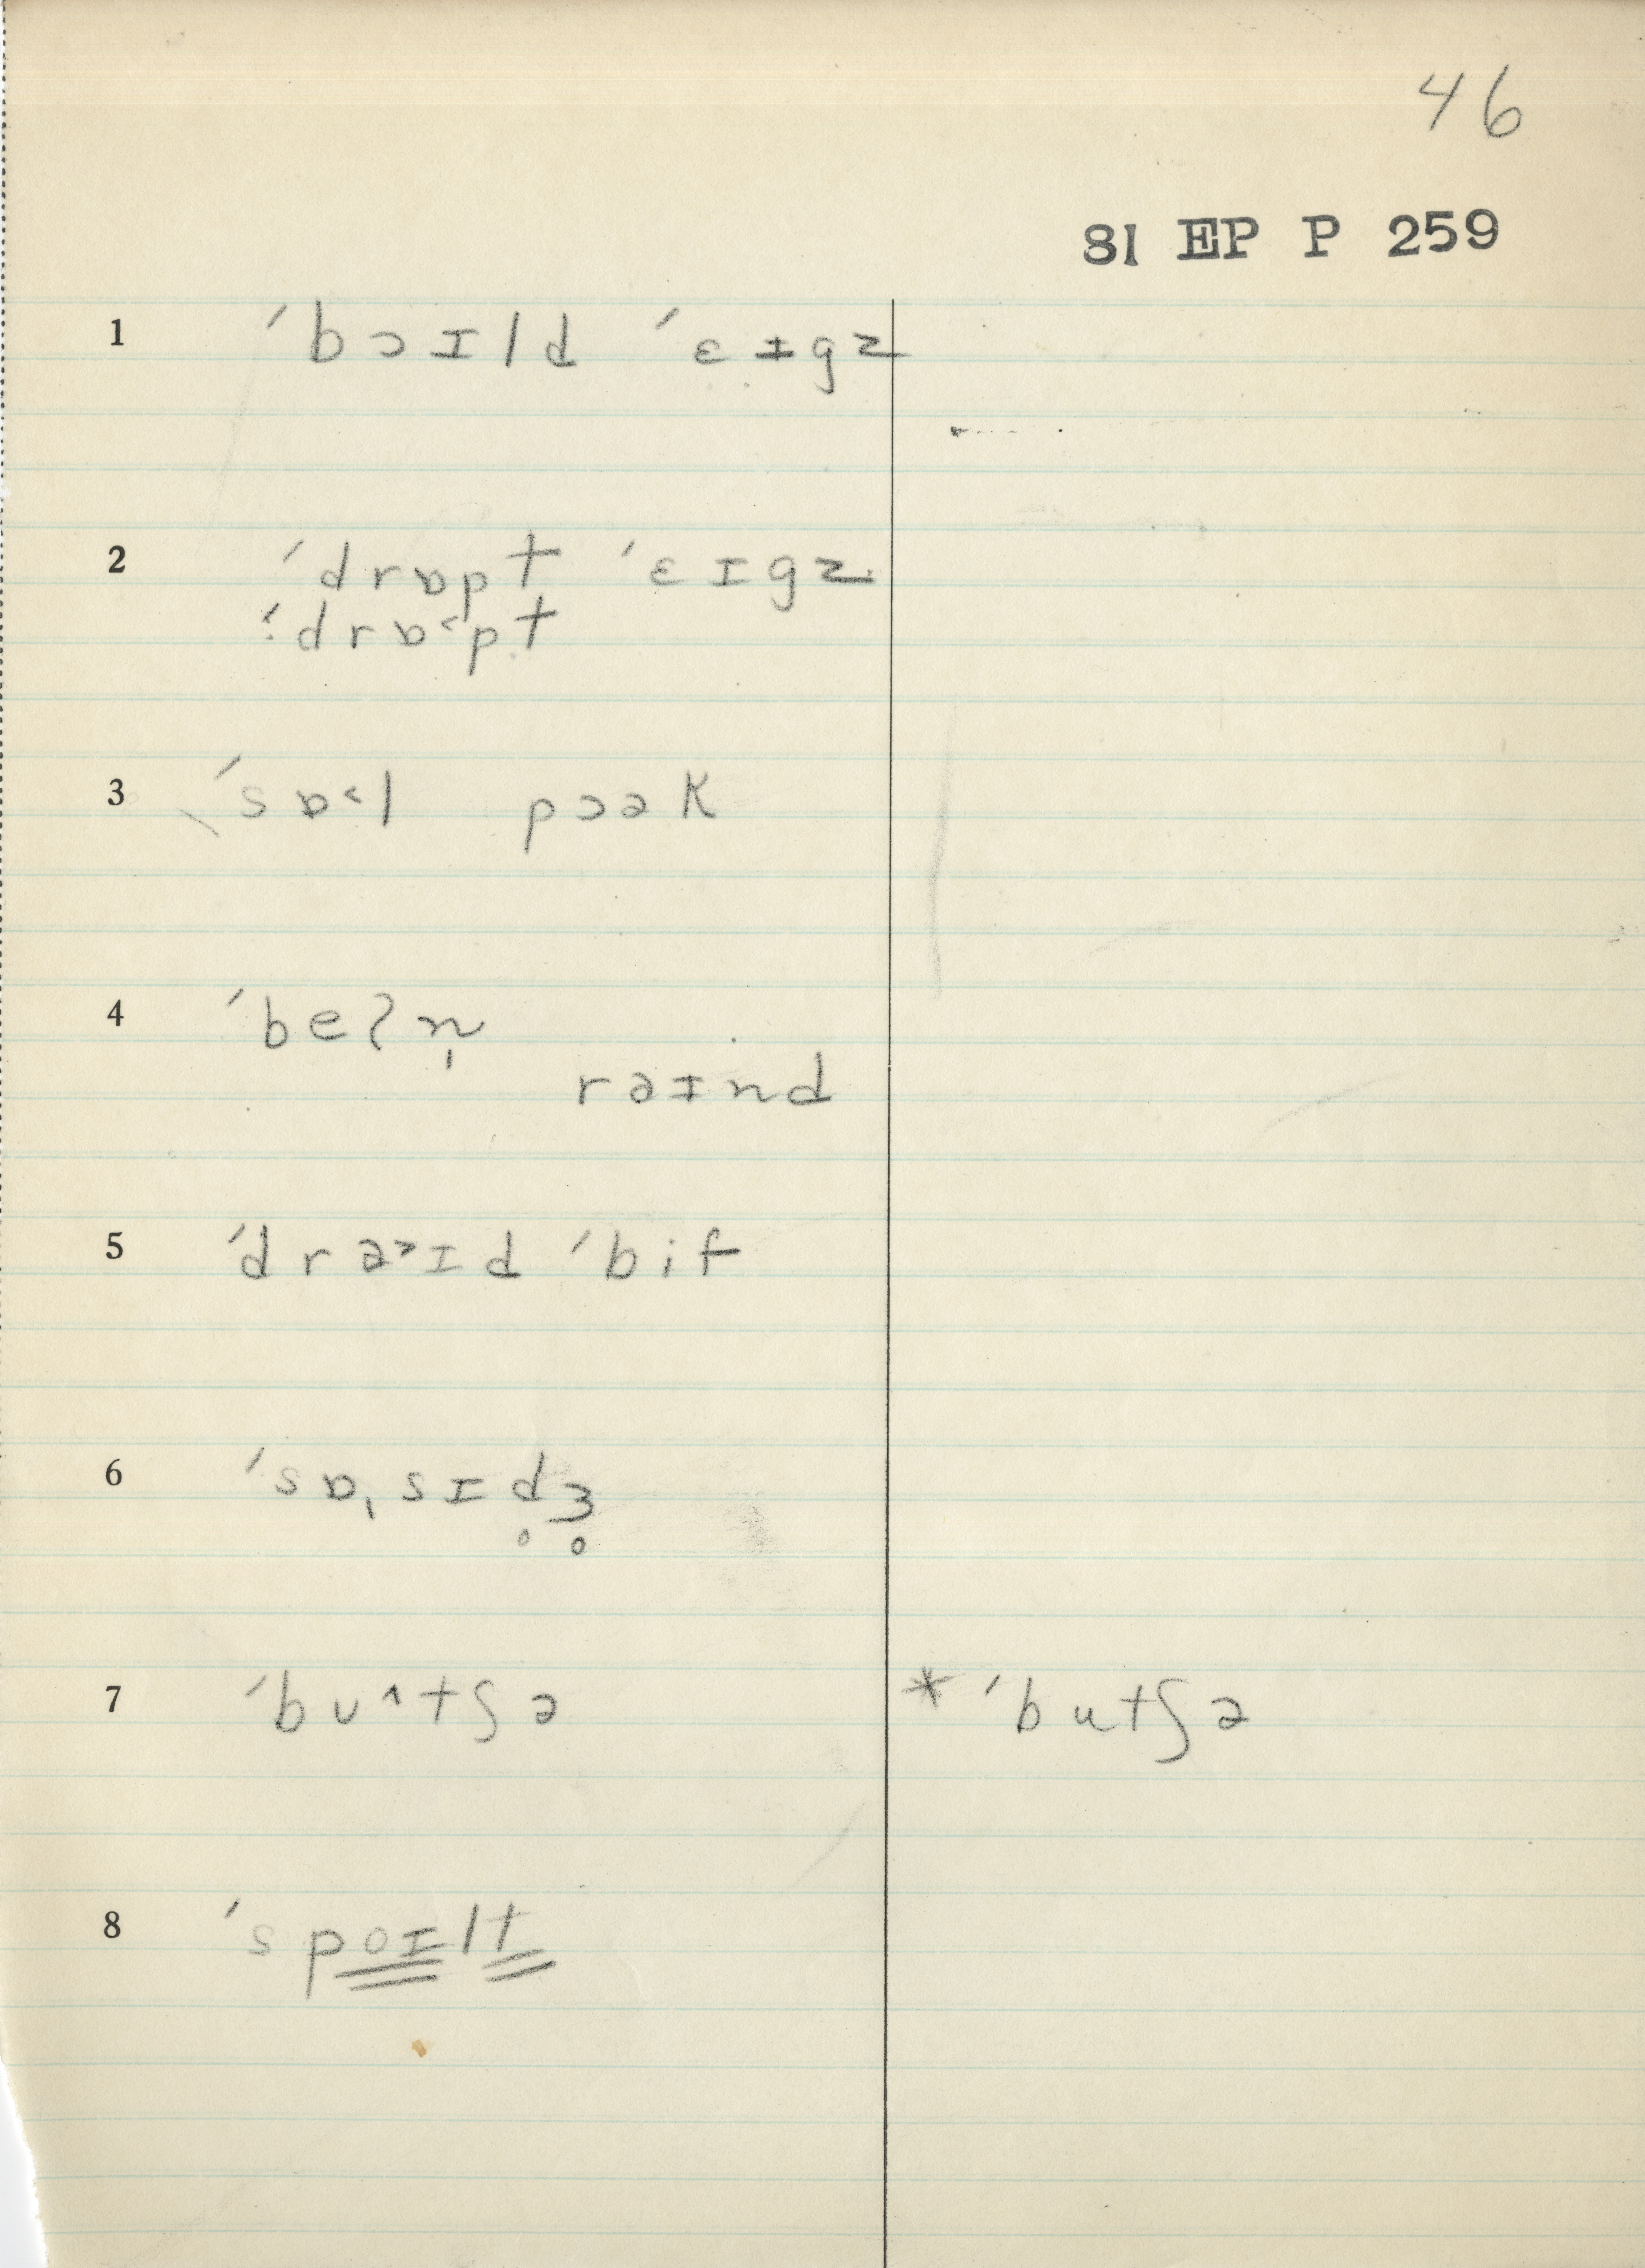 46
81 EP P 259
1 ˈbɔɪld ˈɛɪgz
2 ˈdrɒpt ˈɛɪgz
ˈ:drɒ˂pt
3 ˈsɒ˂l pɔək
4 ˈbeʔn̩
rəɪnd
5 ˈdrə˃ɪd ˈbif
6 ˈsɒˌsɪd̥ʒ̥
7 ˈbʊ^tʃə * ˈbutʃə
8 ˈspoɪlt